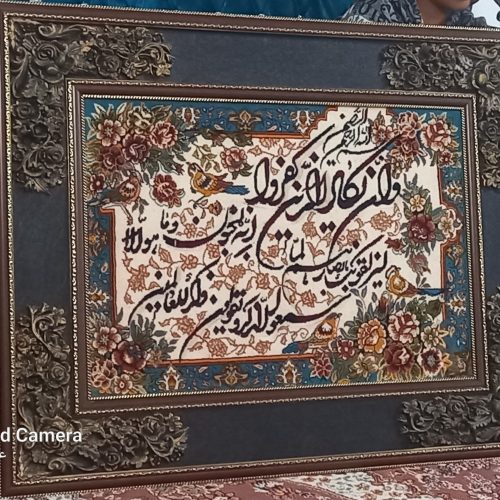 بسم الله الرحمن الرحیم
وان یکاد الذین کفروا
لیزلقونک بابصارهم لما
سمعوا الذکر و یقولون
انه لمجنون وما هو الا
ذکر للعالمین
d Camera